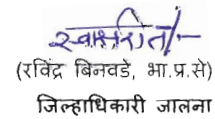 स्वाक्षरीत/-
(रविंद्र बिनवडे, भा.प्र.से)
जिल्हाधिकारी जालना